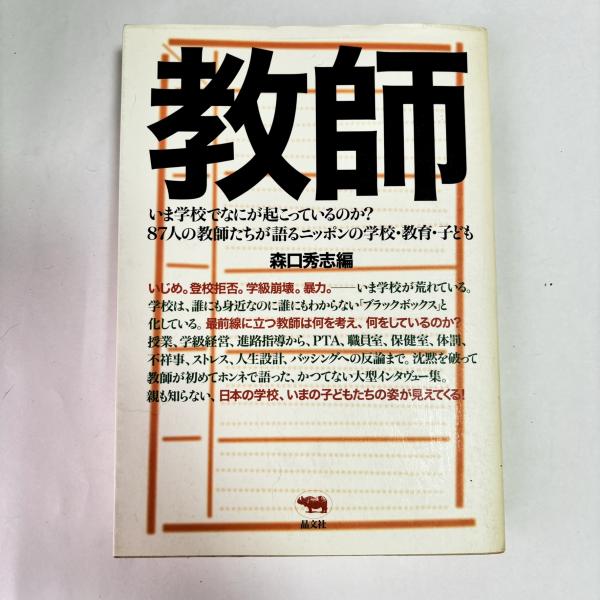 教師
いま学校でなにが起こっているのか?
87人の教師たちが語るニッポンの学校・教育・子ども
森口秀志編
いじめ。登校拒否。学級崩壊。暴力。――いま学校が荒れている。
学校は、誰にも身近なのに誰にもわからない「ブラックボックス」と
化している。最前線に立つ教師は何を考え、何をしているのか?
授業、学級経営、進路指導から、PTA、職員室、保健室、体罰、
不祥事、ストレス、人生設計、バッシングへの反論まで。沈黙を破って
教師が初めてホンネで語った、かつてない大型インタヴュー集。
親も知らない、日本の学校、いまの子どもたちの姿が見えてくる!
晶文社